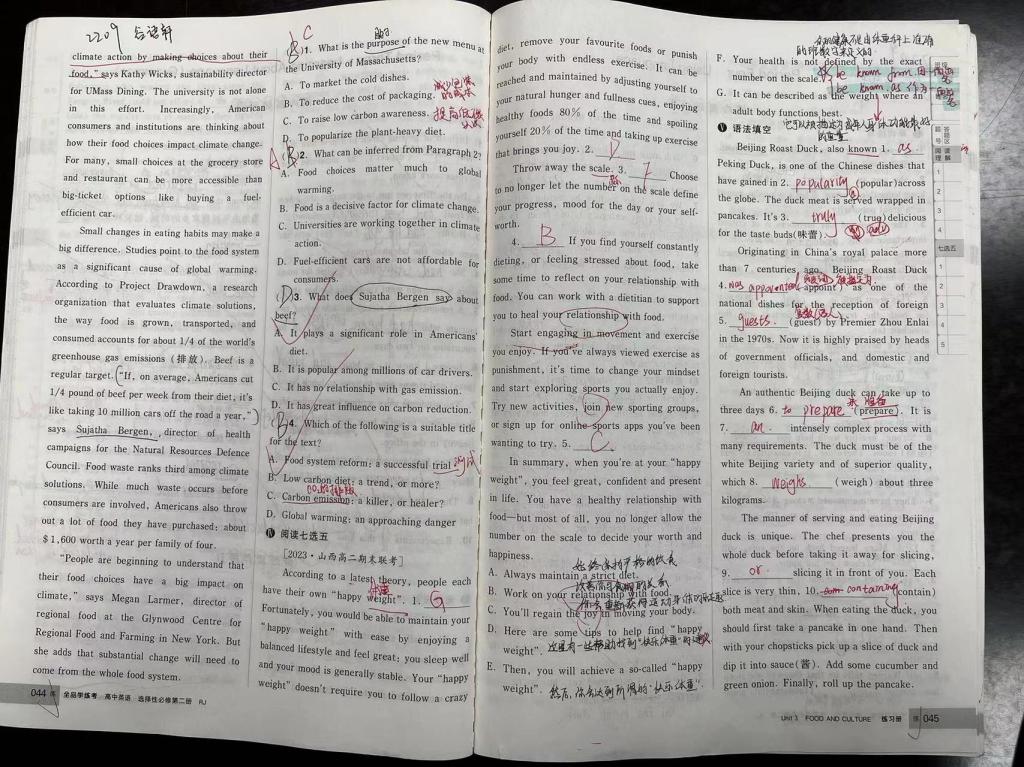 2209
climate action by making choices about their
food," says Kathy Wicks, sustainability director
for UMass Dining. The university is not alone
in this effort. Increasingly, American
consumers and institutions are thinking about
how their food choices impact climate change.
For many, small choices at the grocery store
and restaurant can be more accessible than
big-ticket options like buying a fuel-
efficient car.
Small changes in eating habits may make a
big difference. Studies point to the food system
as a significant cause of global warming.
According to Project Drawdown, a research
organization that evaluates climate solutions,
the way food is grown, transported, and
consumed accounts for about 1/4 of the world's
greenhouse gas emissions (排放). Beef is a
regular target. "If, on average, Americans cut
1/4 pound of beef per week from their diet, it's
like taking 10 million cars off the road a year,"
says Sujatha Bergen, director of health
campaigns for the Natural Resources Defence
Council. Food waste ranks third among climate
solutions. While much waste occurs before
consumers are involved, Americans also throw
out a lot of food they have purchased: about
$1,600 worth a year per family of four.
"People are beginning to understand that
their food choices have a big impact on
climate," says Megan Larmer, director of
regional food at the Glynwood Centre for
Regional Food and Farming in New York. But
she adds that substantial change will need to
come from the whole food system.
044 练 全品学练考 高中英语 选择性必修第二册 RJ
C
(B)1. What is the purpose of the new menu at
the University of Massachusetts?
A. To market the cold dishes.
B. To reduce the cost of packaging. 减少包装的成本
C. To raise low carbon awareness. 提高低碳认识
D. To popularize the plant-heavy diet.
A (B)2. What can be inferred from Paragraph 2?
A. Food choices matter much to global
warming.
B. Food is a decisive factor for climate change.
C. Universities are working together in climate
action.
D. Fuel-efficient cars are not affordable for
consumers.
(D)3. What does Sujatha Bergen say about
beef?
A. It plays a significant role in Americans'
diet.
B. It is popular among millions of car drivers.
C. It has no relationship with gas emission.
D. It has great influence on carbon reduction.
(B)4. Which of the following is a suitable title
for the text?
A. Food system reform: a successful trial 测试
B. Low carbon diet: a trend, or more?
C. Carbon emission: a killer, or healer?
D. Global warming: an approaching danger
Ⅳ 阅读七选五
[2023·山西高二期末联考]
According to a latest theory, people each
体重
have their own "happy weight". 1. G
Fortunately, you would be able to maintain your
"happy weight" with ease by enjoying a
balanced lifestyle and feel great: you sleep well
and your mood is generally stable. Your "happy
weight" doesn't require you to follow a crazy
diet, remove your favourite foods or punish
your body with endless exercise. It can be
reached and maintained by adjusting yourself to
your natural hunger and fullness cues, enjoying
healthy foods 80% of the time and spoiling
yourself 20% of the time and taking up exercise
that brings you joy. 2. D
Throw away the scale. 3. F Choose
to no longer let the number on the scale define
your progress, mood for the day or your self-
worth.
4. B If you find yourself constantly
dieting, or feeling stressed about food, take
some time to reflect on your relationship with
food. You can work with a dietitian to support
you to heal your relationship with food.
Start engaging in movement and exercise
you enjoy. If you've always viewed exercise as
punishment, it's time to change your mindset
and start exploring sports you actually enjoy.
Try new activities, join new sporting groups,
or sign up for online sports apps you've been
wanting to try. 5. C
In summary, when you're at your "happy
weight", you feel great, confident and present
in life. You have a healthy relationship with
food—but most of all, you no longer allow the
number on the scale to decide your worth and
happiness.
始终保持严格的饮食
A. Always maintain a strict diet.
改善你与食物的关系
B. Work on your relationship with food.
C. You'll regain the joy in moving your body.
D. Here are some tips to help find "happy
weight". 这里有一些帮助找到"快乐体重"的建议
E. Then, you will achieve a so-called "happy
weight". 然后,你会达到所谓的"快乐体重".
F. Your health is not defined by the exact
number on the scale. be known from 因
be known as 作为
G. It can be described as the weight where an
adult body functions best.
Ⅴ 语法填空
Beijing Roast Duck, also known 1. as
Peking Duck, is one of the Chinese dishes that
have gained in 2. popularity (popular) across
the globe. The duck meat is served wrapped in
pancakes. It's 3. truly (trug) delicious
for the taste buds(味蕾).
Originating in China's royal palace more
than 7 centuries ago, Beijing Roast Duck
4. was appointed (appoint) as one of the
national dishes for the reception of foreign
5. guests (guest) by Premier Zhou Enlai
in the 1970s. Now it is highly praised by heads
of government officials, and domestic and
foreign tourists.
An authentic Beijing duck can take up to
three days 6. to prepare (prepare). It is
7. an intensely complex process with
many requirements. The duck must be of the
white Beijing variety and of superior quality,
which 8. weighs (weigh) about three
kilograms.
The manner of serving and eating Beijing
duck is unique. The chef presents you the
whole duck before taking it away for slicing,
9. or slicing it in front of you. Each
slice is very thin, 10. containing (contain)
both meat and skin. When eating the duck, you
should first take a pancake in one hand. Then
with your chopsticks pick up a slice of duck and
dip it into sauce(酱). Add some cucumber and
green onion. Finally, roll up the pancake.
Unit 3 FOOD AND CULTURE 练习册 练 045